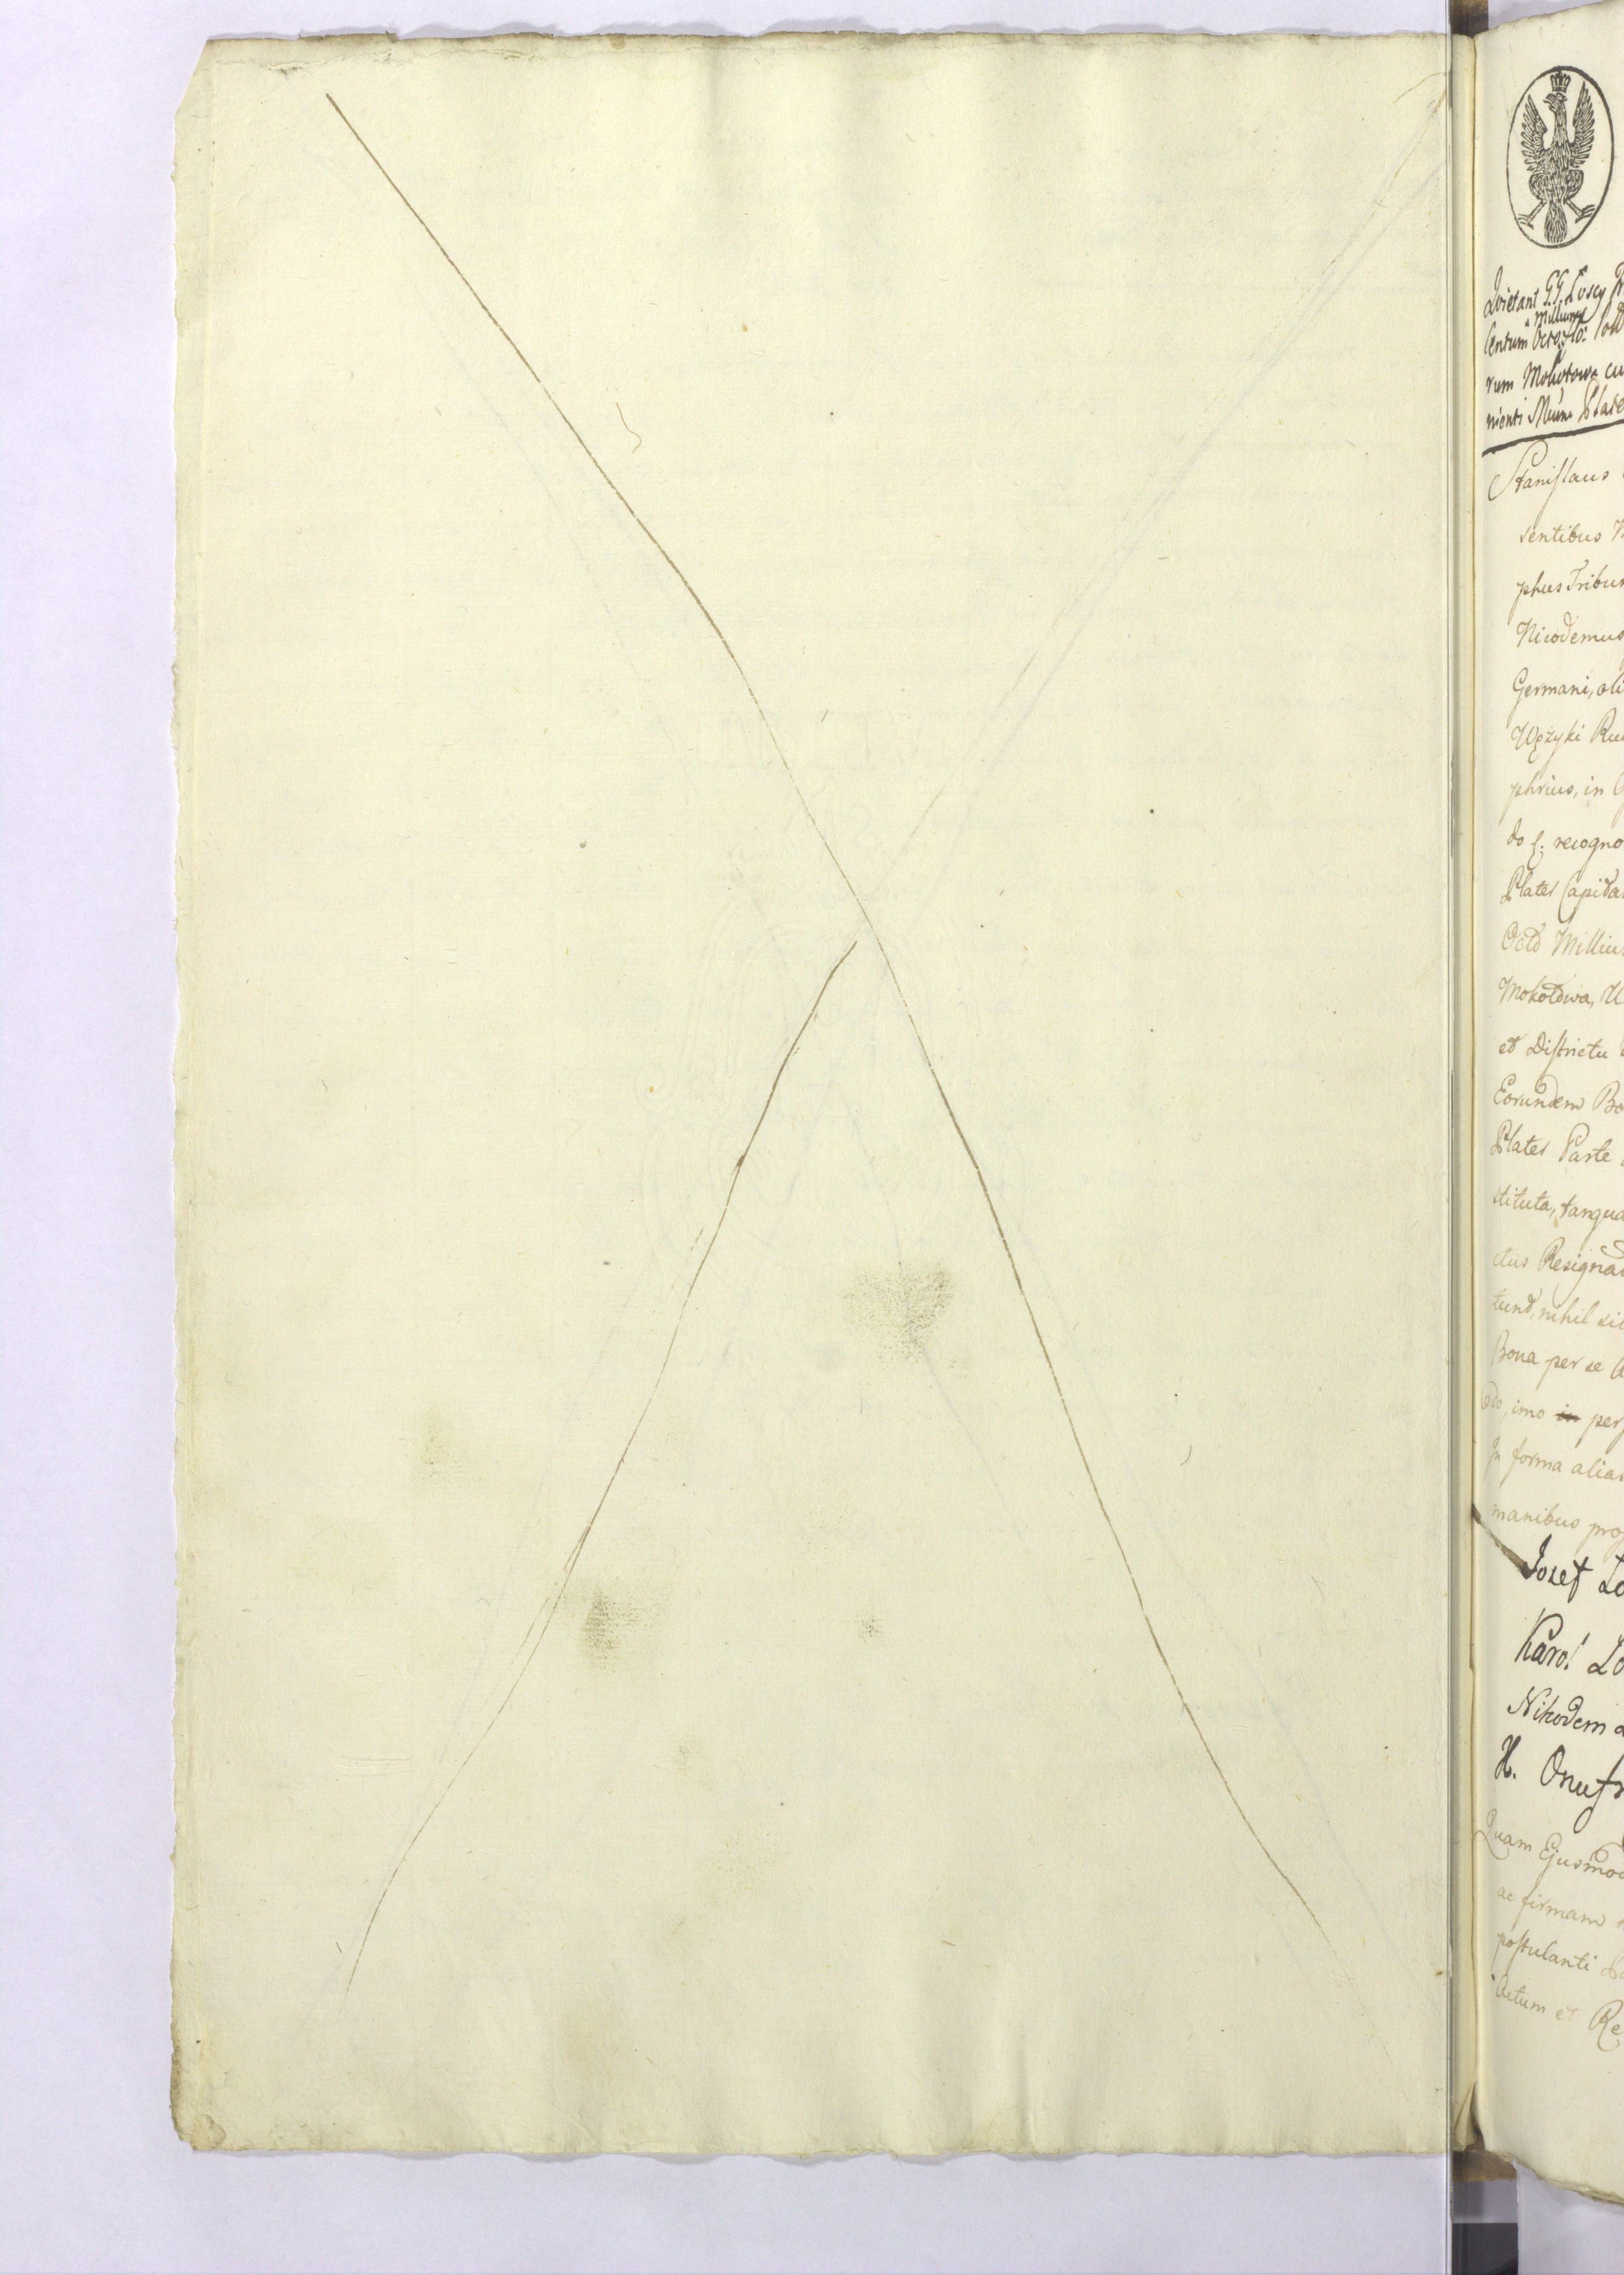 Quietant GG Łoscy
Millium
Centum Octo
rum Mokotowa cu
nienti Plate
Stanislaus
sentibus
phus Tribun
Nicodemus
Germani, oli
Wężyki Ru
phrius, in
do f: recogno
Plater Capita
Octo Milliu
Mokotowa, U
et Districtu
Eorundem Bo
Plater Parte
stituta, tanqua
ctus Resigna
tund, nihil sib
Bona per se
imo in per
In forma alias
manibus pro
Jozef Lo
Karol Lo
Nikodem
H. Onufr
Quam Ejusmod
ac firmam
postulanti
Actum et Re